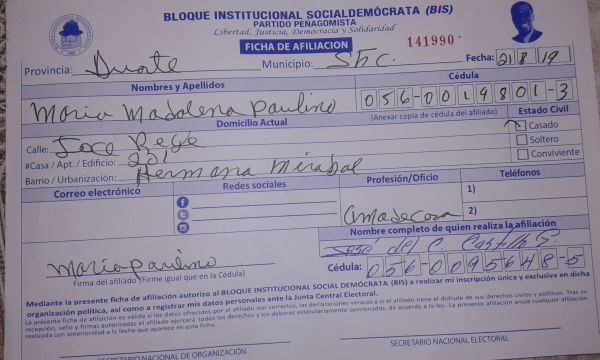 BLOQUE INSTITUCIONAL SOCIALDEMÓCRATA (BIS)
PARTIDO PENAGOMISTA
Libertad, Justicia, Democracia y Solidaridad
FICHA DE AFILIACION
141990
Provincia: Duarte Municipio: Fecha: 21 8 19
Nombres y Apellidos Cédula
Maria Madalena Paulino 056-0019801-3
Domicilio Actual (Anexar copia de cédula del afiliado) Estado Civil
Calle:
Casado
#Casa / Apt. / Edificio: 201
Soltero
Barrio / Urbanización: Hermana Mirabal
Conviviente
Correo electrónico Redes sociales Profesión/Oficio Teléfonos
1)
2)
Nombre completo de quien realiza la afiliación
José del C. Castillo
Maria paulino
Cédula: 056-0095648-5
Firma del afiliado (Firme igual que en la Cédula)
Mediante la presente ficha de afiliación autorizo al BLOQUE INSTITUCIONAL SOCIAL DEMÓCRATA (BIS) a realizar mi inscripción única y exclusiva en dicha
organización política, así como a registrar mis datos personales ante la Junta Central Electoral.
La presente ficha de afiliación es válida si los datos ofrecidos por el afiliado son correctos, las declaraciones veraces y si el afiliado tiene el disfrute de sus derechos civiles y políticos. Tras su
recepción, sello y firmas autorizadas el afiliado ejercerá todos los derechos y los deberes estatutariamente sancionados, de acuerdo a la ley. La presente afiliación anula cualquier afiliación
realizada con anterioridad a la fecha que aparece en esta ficha.
SECRETARIO NACIONAL DE ORGANIZACIÓN
SECRETARIO NACIONAL ELECTORAL